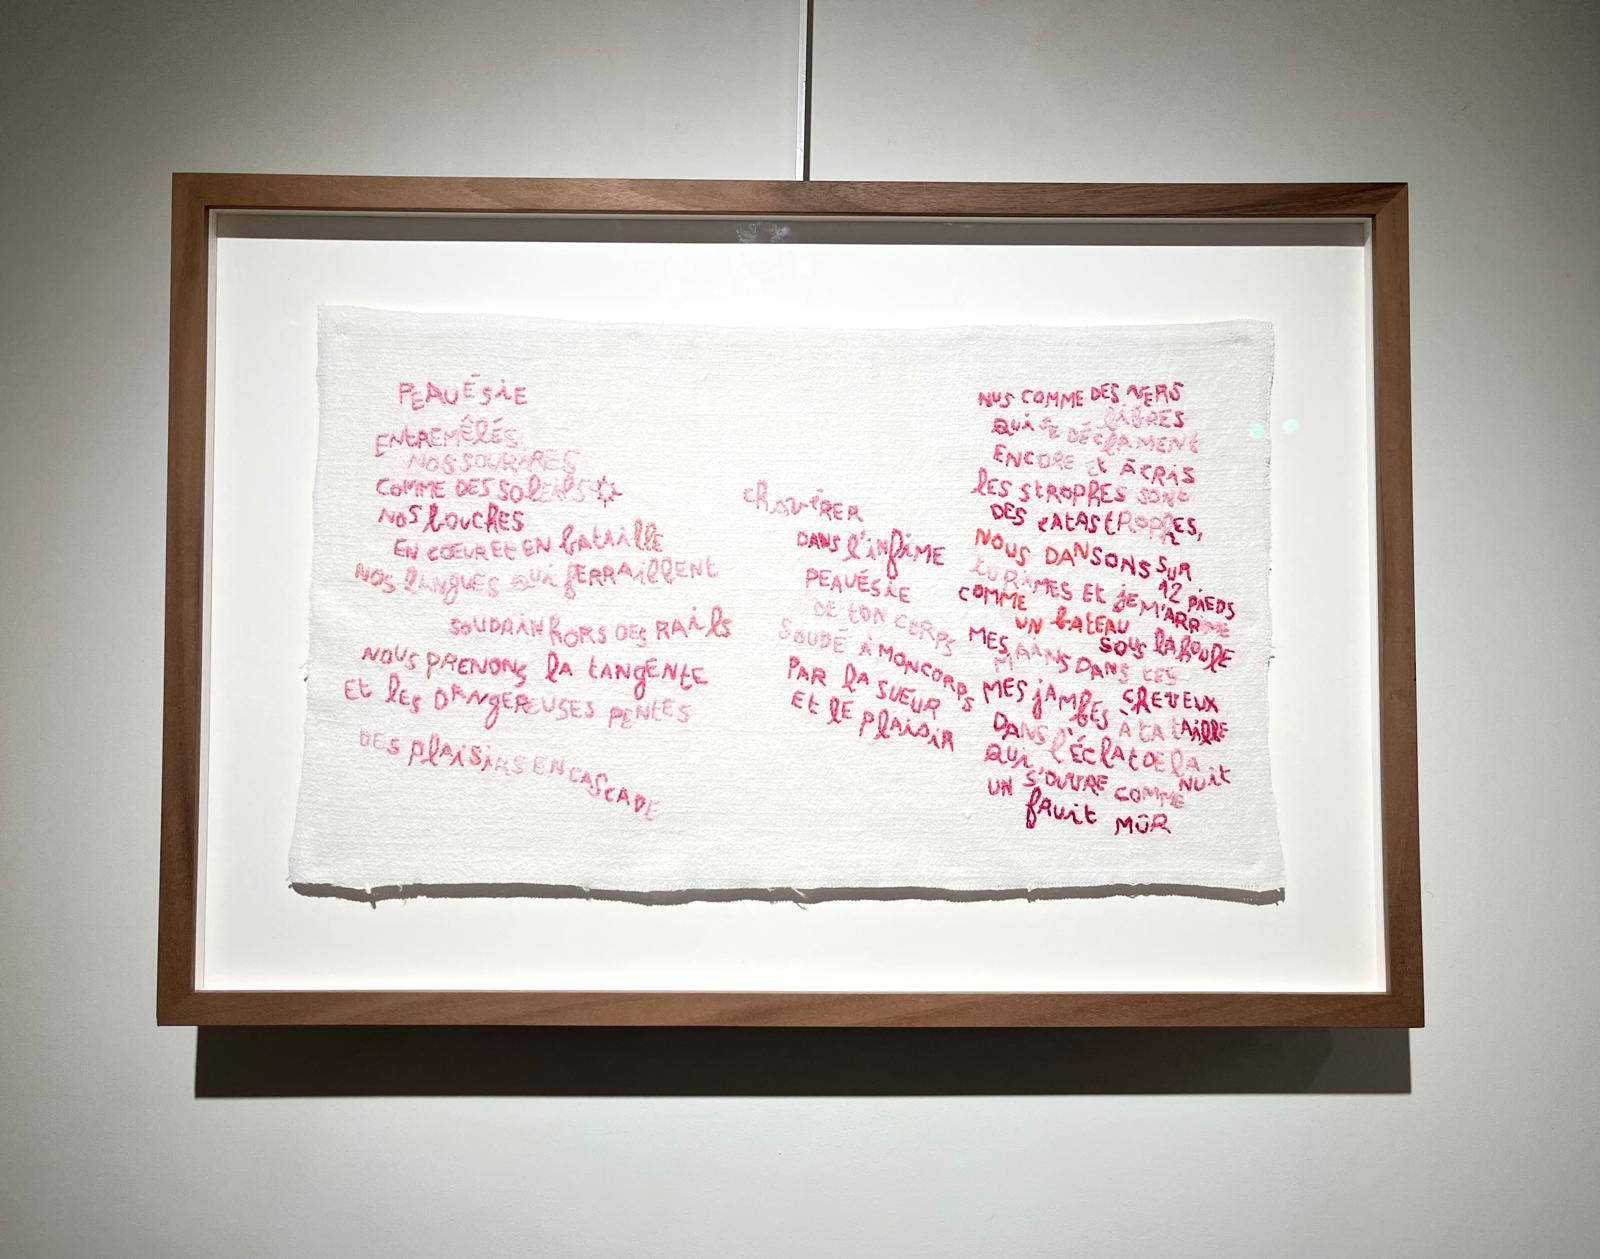 PEAUÉSIE
ENTREMÊLÉS
NOS SOURIRES
COMME DES SOLEILS
NOS BOUCHES
EN CŒUR ET EN BATAILLE
NOS LANGUES QUI FERRAILLENT
SOUDAIN HORS DES RAILS
NOUS PRENONS LA TANGENTE
ET LES DANGEREUSES PENTES
DES PLAISIRS EN CASCADE
CHAVIRER
DANS L'INFIME
PEAUÉSIE
DE TON CORPS
SOUDÉ À MON CORPS
PAR LA SUEUR
ET LE PLAISIR
NUS COMME DES VERS
LIBRES
QUI SE DÉCLAMENT
ENCORE ET À CRIS
LES STROPHES SONT
DES CATASTROPHES,
NOUS DANSONS SUR
12 PIEDS
TU RIMES ET JE M'ARRIME
COMME UN BATEAU
SOUS LA HOULE
MES MAINS DANS TES
CHEVEUX
MES JAMBES À TA TAILLE
DANS L'ÉCLAT DE LA
NUIT
QUI S'OUVRE COMME
UN FRUIT MÛR